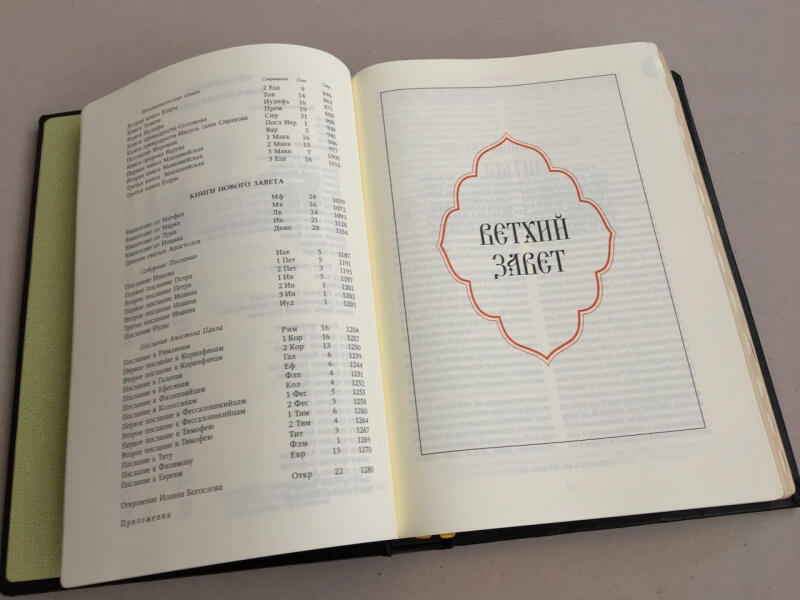 Неканонические книги Сокращение Глав Стр.
Вторая книга Ездры 2 Езд 9 846
Книга Товита Тов 14
Книга Иудифи Иудифь 16
Книга премудрости Соломона Прем 19
Книга премудрости Иисуса, сына Сирахова Сир 51
Послание Иеремии Посл Иер 1
Книга пророка Варуха Вар 5
Первая книга Маккавейская 1 Макк 16
Вторая книга Маккавейская 2 Макк 15 977
Третья книга Маккавейская 3 Макк 7 1000
Третья книга Ездры 3 Езд 16
КНИГИ НОВОГО ЗАВЕТА
Евангелие от Матфея Мф 28 1039
Евангелие от Марка Мк 16 1072
Евангелие от Луки Лк 24 1093
Евангелие от Иоанна Ин 21 1128
Деяния святых Апостолов Деян 28 1154
Соборные Послания
Послание Иакова Иак 5 1187
Первое послание Петра 1 Пет 5 1191
Второе послание Петра 2 Пет 3 1195
Первое послание Иоанна 1 Ин 5 1197
Второе послание Иоанна 2 Ин 1 1201
Третье послание Иоанна 3 Ин 1 1202
Послание Иуды Иуд 1
Послания Апостола Павла
Послание к Римлянам Рим 16 1204
Первое послание к Коринфянам 1 Кор 16 1217
Второе послание к Коринфянам 2 Кор 13 1230
Послание к Галатам Гал 6 1239
Послание к Ефесянам Еф 6 1244
Послание к Филиппийцам Флп 4 1251
Послание к Колоссянам Кол 4 1252
Первое послание к Фессалоникийцам 1 Фес 5 1255
Второе послание к Фессалоникийцам 2 Фес 3 1258
Первое послание к Тимофею 1 Тим 6 1260
Второе послание к Тимофею 2 Тим 4 1264
Послание к Титу Тит 3 1267
Послание к Филимону Флм 1 1269
Послание к Евреям Евр 13 1270
Откровение Иоанна Богослова Откр 22 1280
Приложения
ВЕТХИЙ
ЗАВЕТ